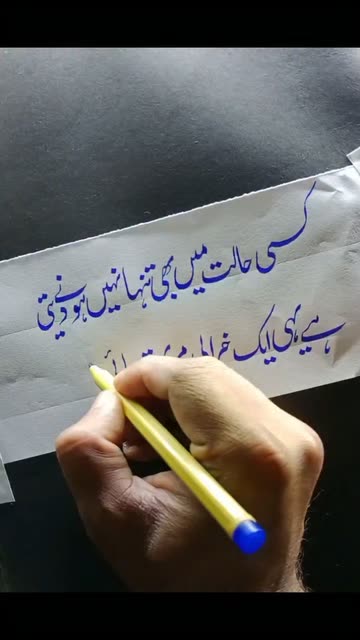 کسی حالت میں بھی تنہا نہیں ہونے دیتی
ہے یہی ایک خرابی مری